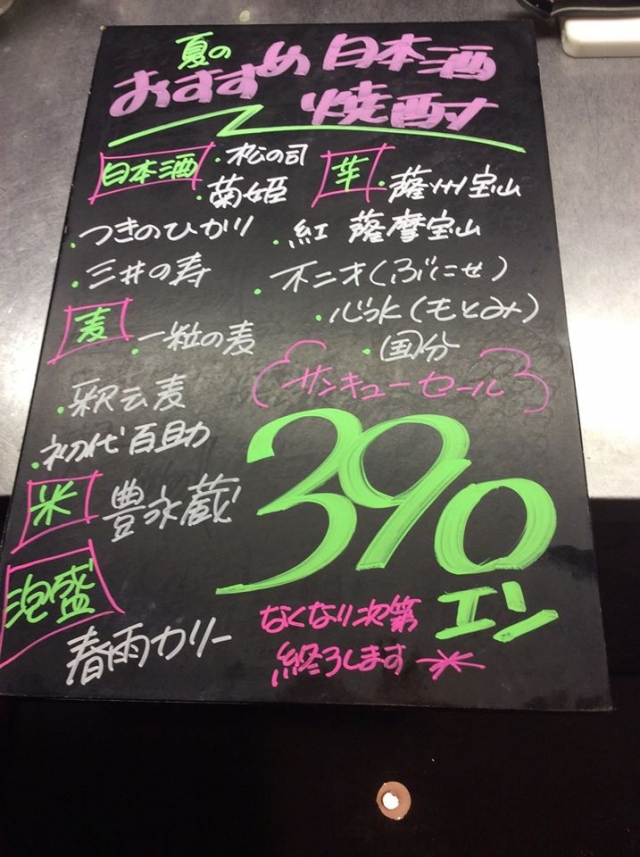 夏の
おすすめ 日本酒
焼酎
日本酒
・松の司
・菊姫
・つきのひかり
・三井の寿
芋
・薩州宝山
・紅 薩摩宝山
・不二才(ぶにせ)
・心水(もとみ)
・国分
麦
・一粒の麦
・釈云麦
・初代百助
米
豊永蔵
泡盛
春雨カリー
サンキューセール
390
エン
なくなり次第
終ろします